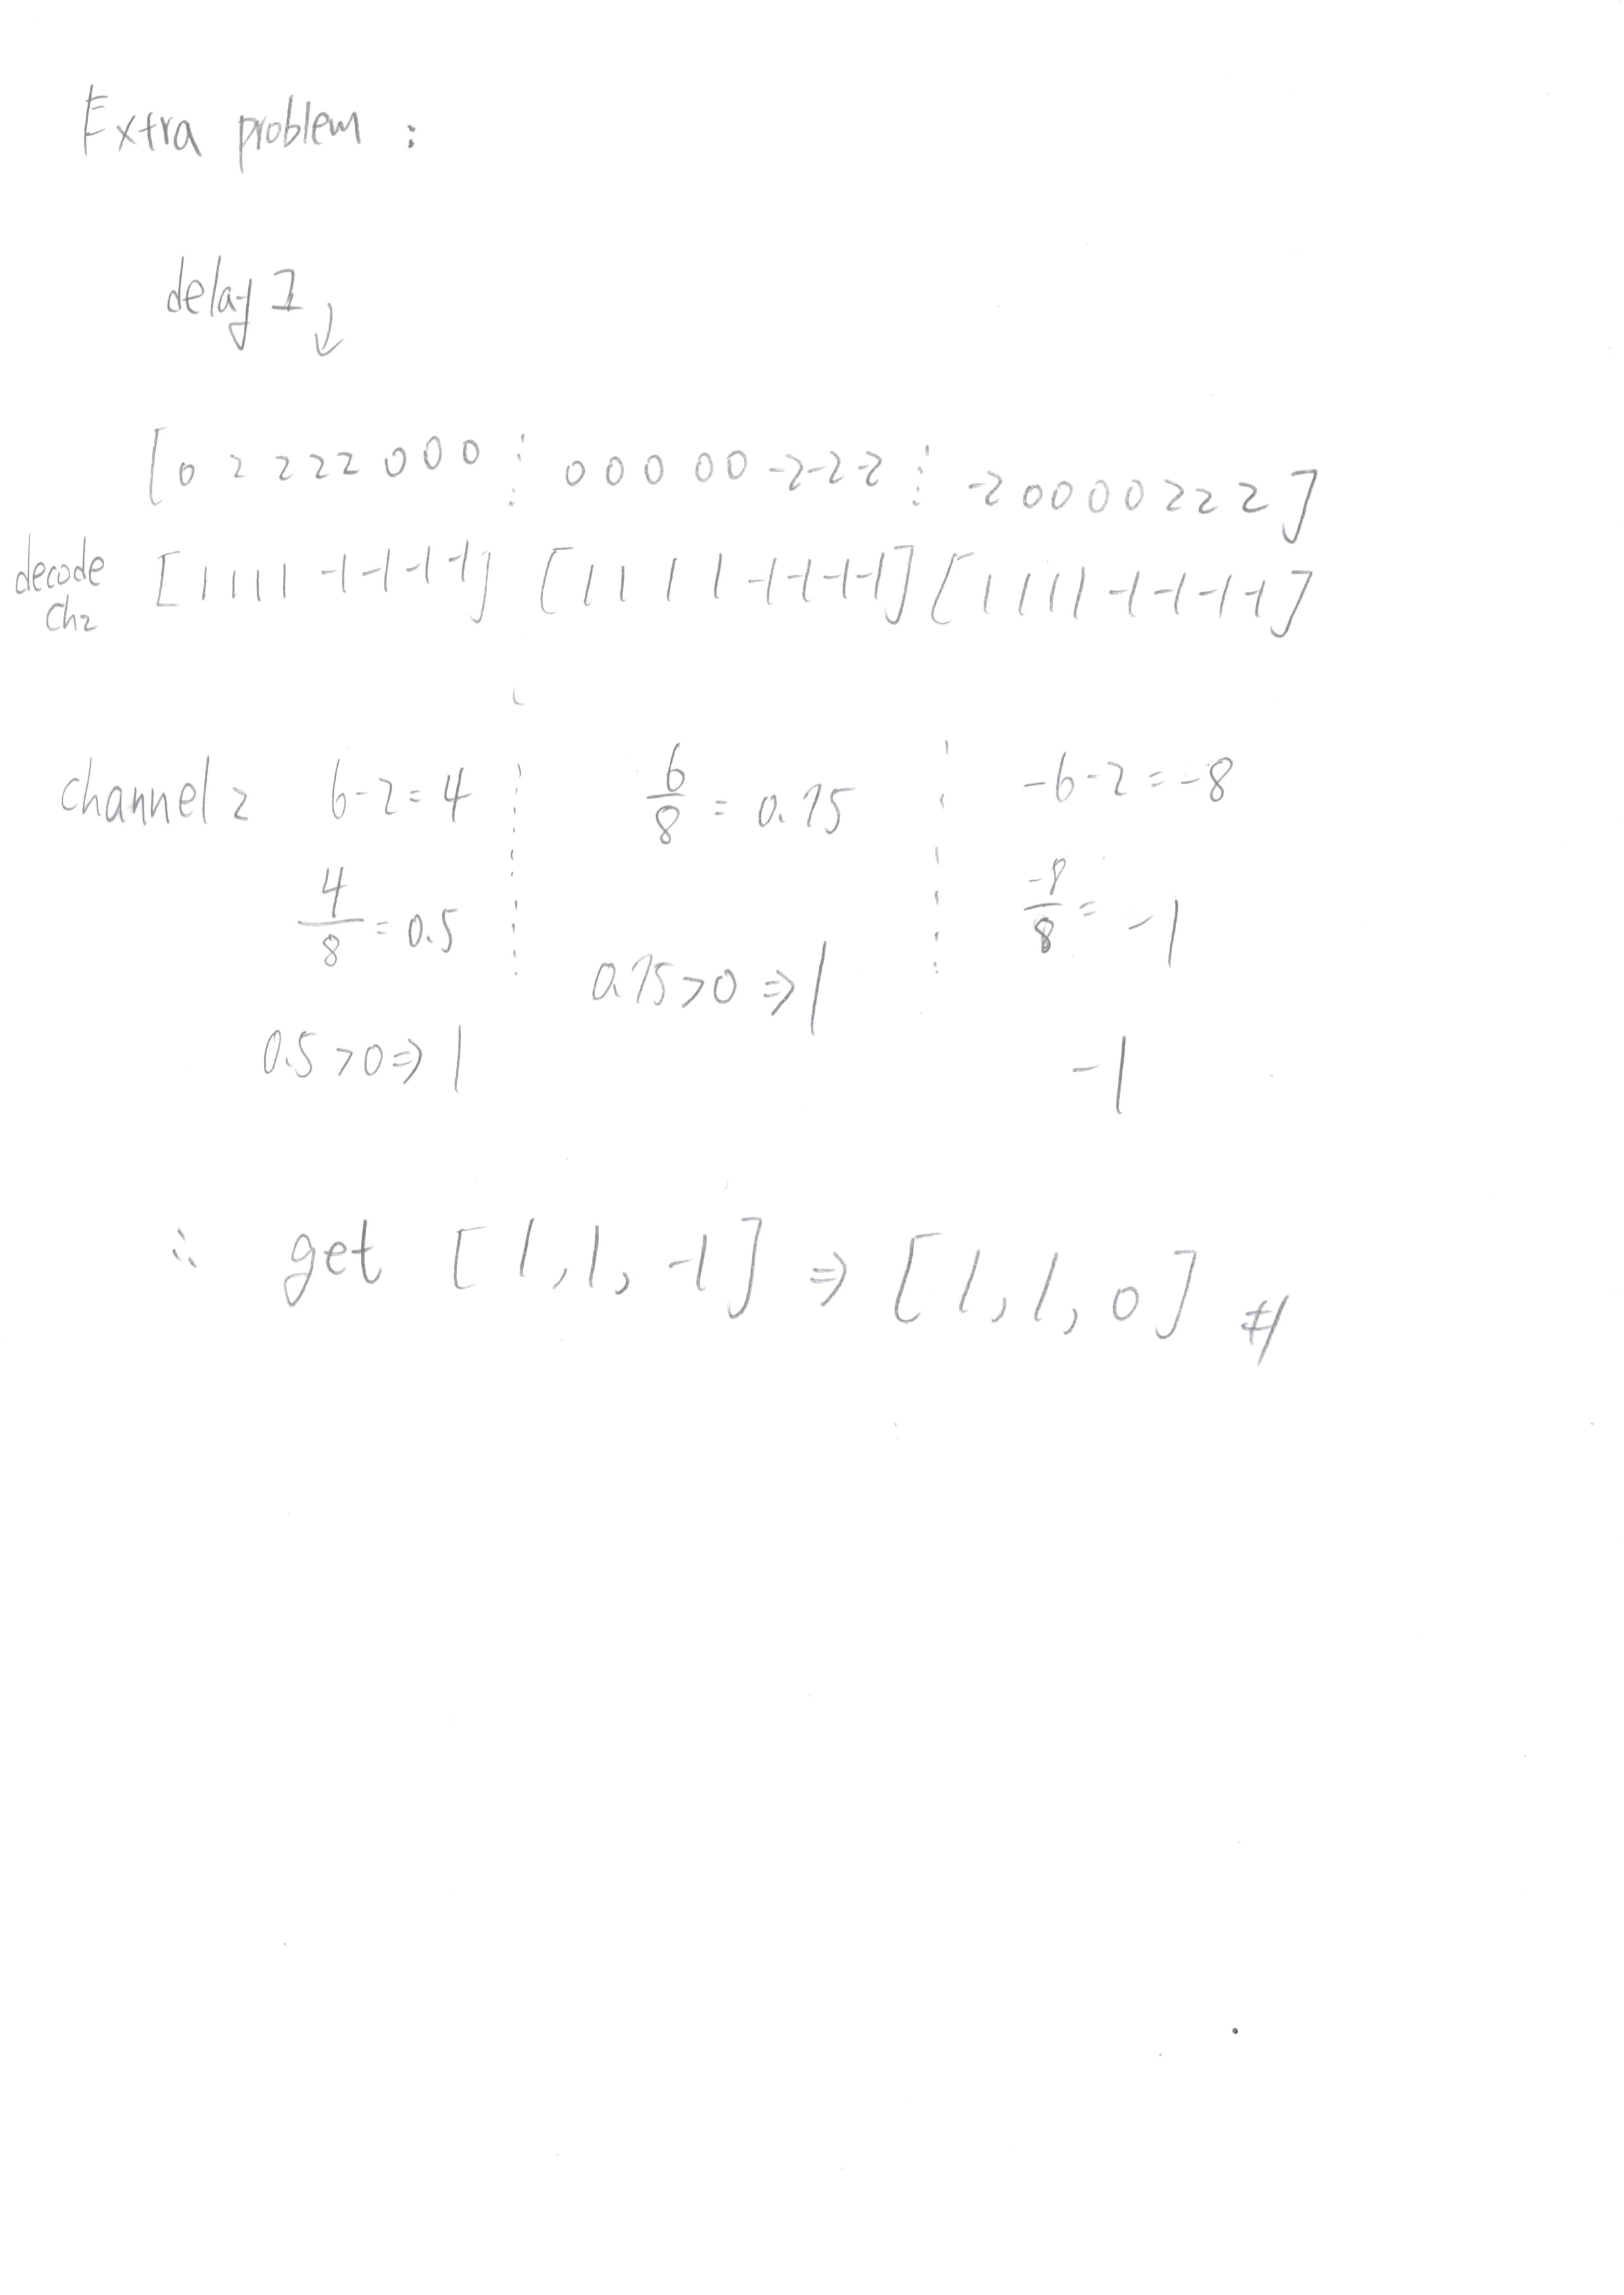 Extra problem :
delay 1 ↓
[ 0 2 2 2 2 0 0 0 ⋮ 0 0 0 0 0 -2 -2 -2 ⋮ -2 0 0 0 0 2 2 2 ]
decode ch2 [ 1 1 1 1 -1 -1 -1 -1 ] [ 1 1 1 1 -1 -1 -1 -1 ] [ 1 1 1 1 -1 -1 -1 -1 ]
channel 2 6-2=4 6/8 = 0.75 -6-2=-8
4/8 = 0.5 -8/8 = -1
0.75>0 ⇒ 1
0.5>0 ⇒ 1 -1
∴ get [ 1, 1, -1 ] ⇒ [ 1, 1, 0 ] #